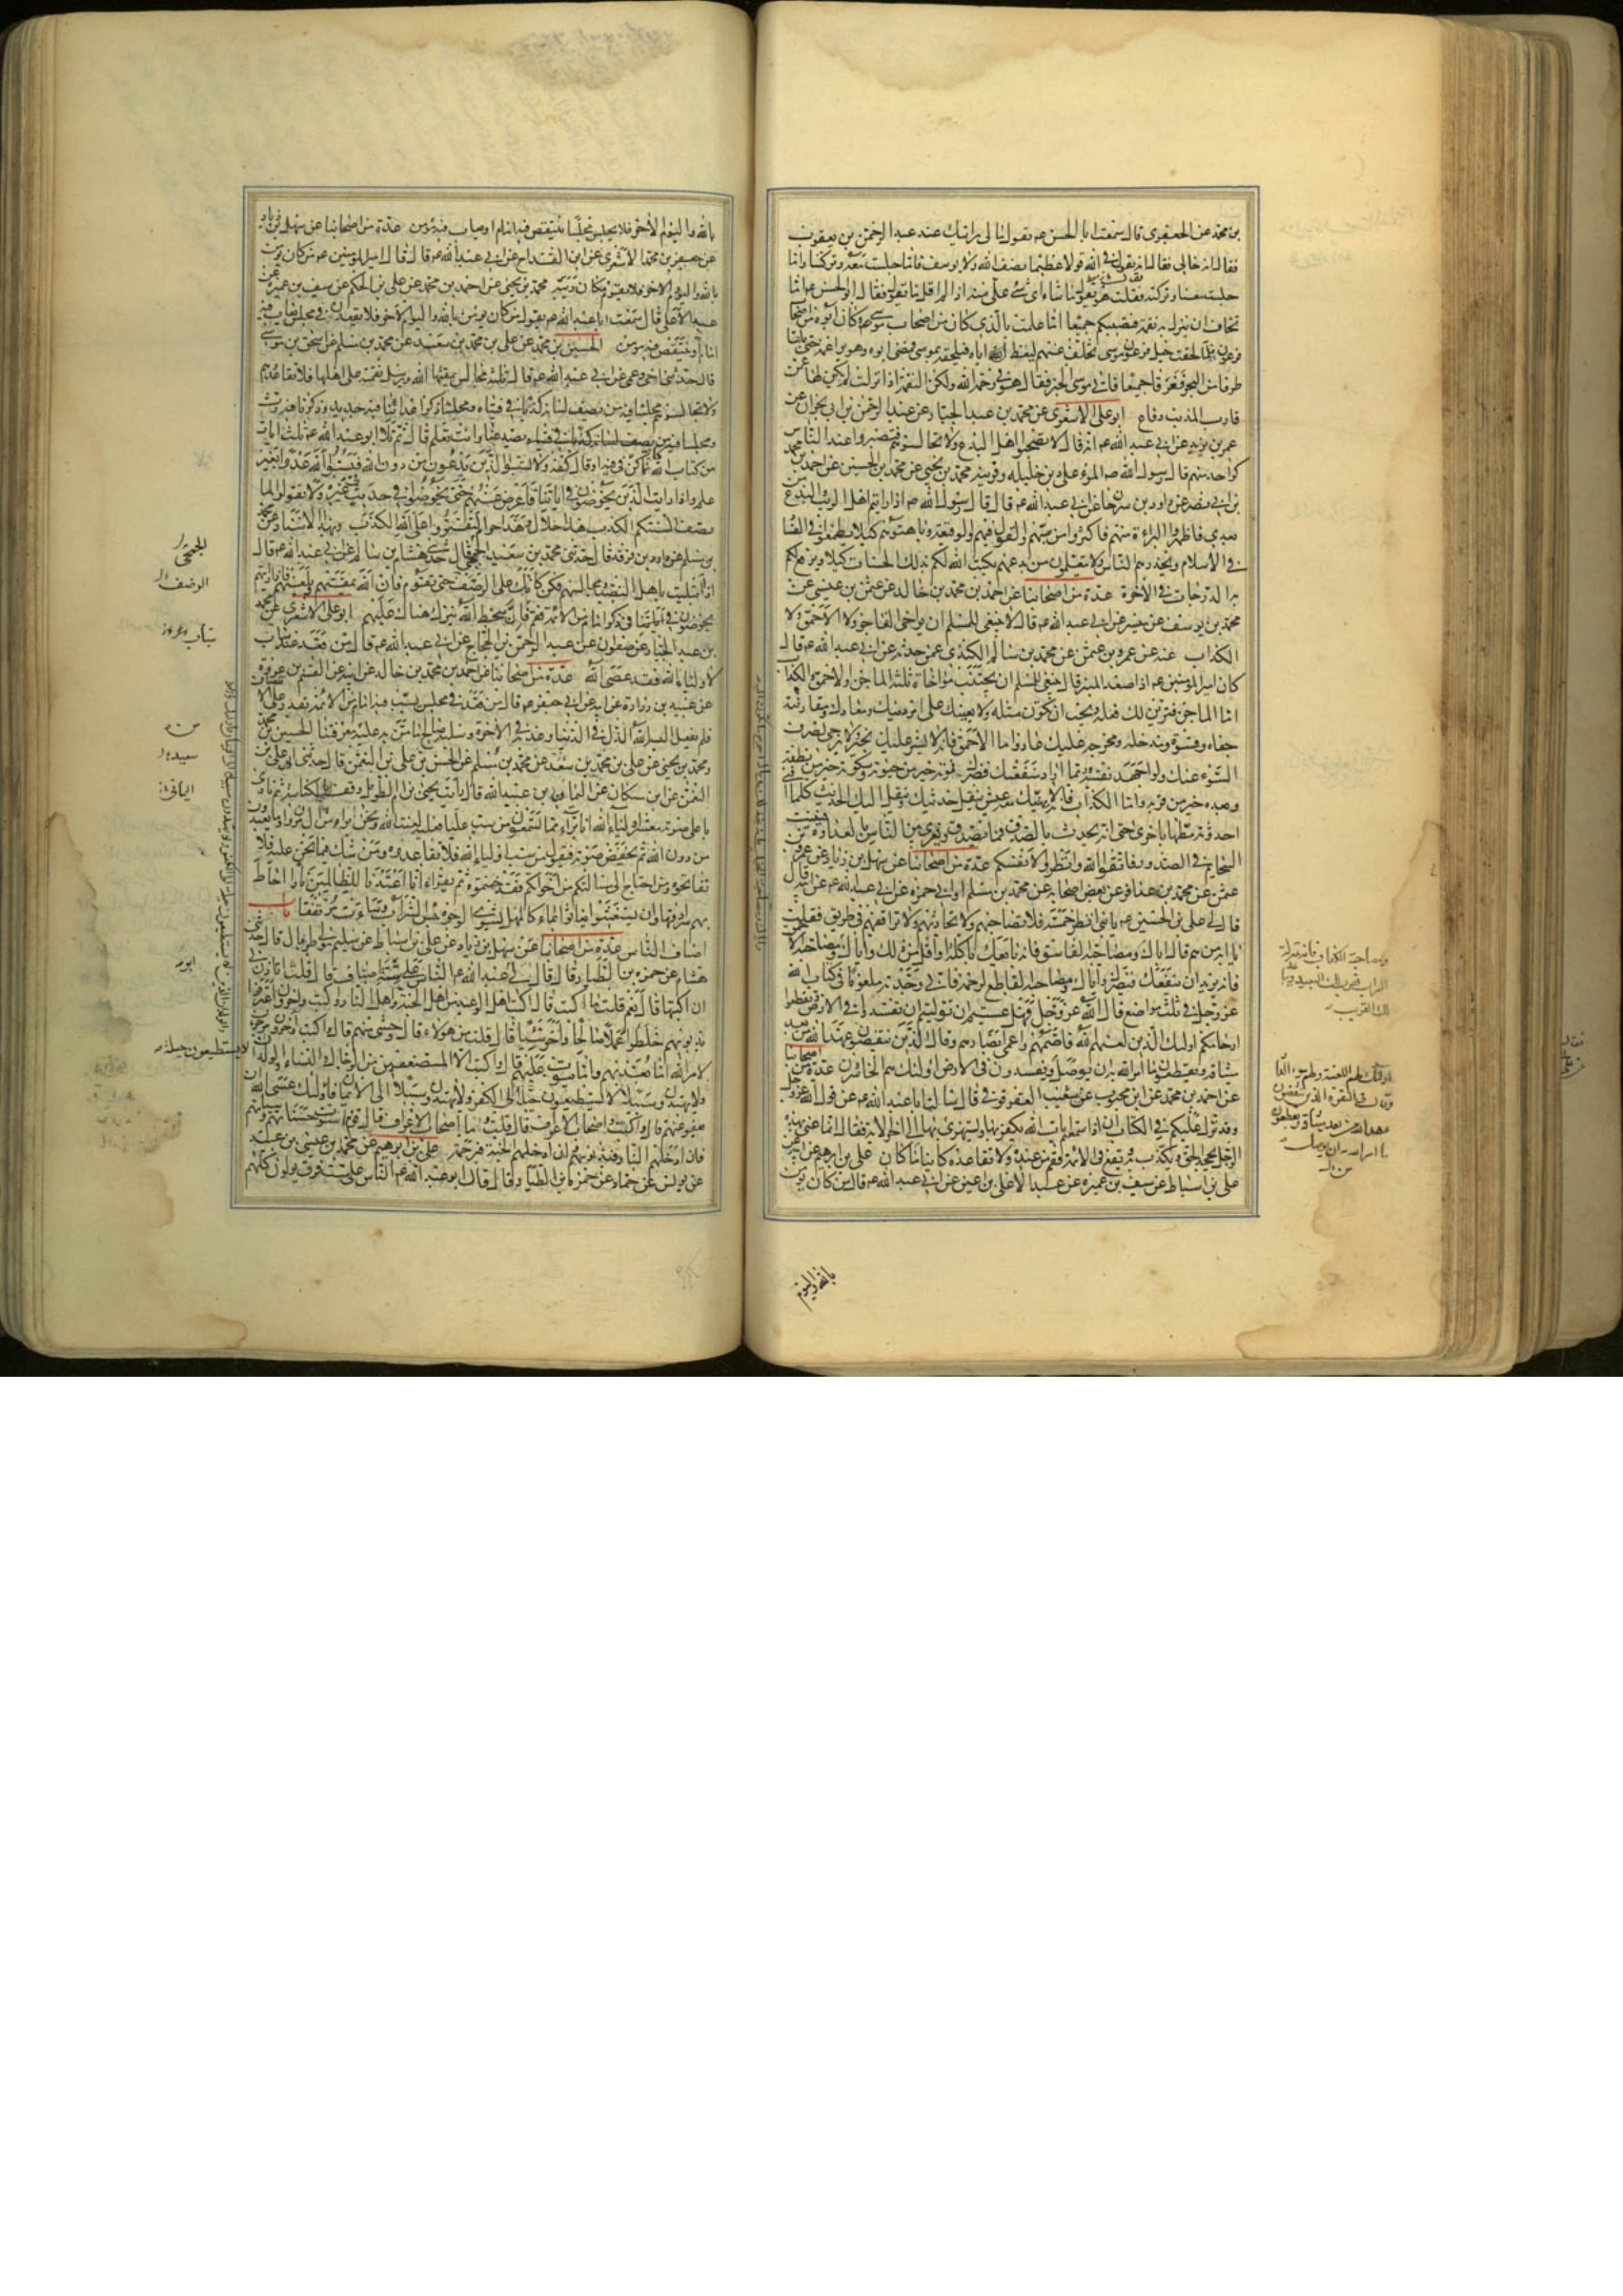 بن محمد عن الجعفری قال سمعت ابا الحسن عم يقول لابی رايتك عند عبد الرحمن بن يعقوب
فقال انه خالی فقال انه يقول فی الله قولا عظيما يصف الله ولا يوصف فاما جلست معه وتركتنا واما
جلست معنا وتركته فقلت هو يقول ما شاء ای شئ علی منه اذا لم اقل ما يقول فقال ابو الحسن عم اما
تخاف ان ينزل به نقمة فتصيبكم جميعا اما علمت بالذی كان من اصحاب موسی عم وكان ابوه من اصحاب
فرعون فلما لحقت خيل فرعون موسی تخلف عنه ليعظ اباه فيلحقه بموسی فمضی ابوه وهو يراغمه حتی بلغا
طرفا من البحر فغرقا جميعا فاتی موسی الخبر فقال هو فی رحمة الله ولكن النقمة اذا نزلت لم يكن لها عمن
قارب المذنب دفاع ابو علی الاشعری عن محمد بن عبد الجبار عن عبد الرحمن بن ابی نجران عن
عمر بن يزيد عن ابی عبد الله عم انه قال لا تصحبوا اهل البدع ولا تجالسوهم فتصيروا عند الناس
كواحد منهم قال رسول الله ص المرء علی دين خليله وقرينه محمد بن يحيی عن محمد بن الحسين عن احمد بن محمد
بن ابی نصر عن داود بن سرحان عن ابی عبد الله عم قال قال رسول الله ص اذا رايتم اهل الريب والبدع من
بعدی فاظهروا البراءة منهم واكثروا من سبهم والقول فيهم والوقيعة وباهتوهم كيلا يطمعوا فی الفساد
فی الاسلام ويحذرهم الناس ولا يتعلمون من بدعهم يكتب الله لكم بذلك الحسنات ويرفع لكم
به الدرجات فی الاخرة عدة من اصحابنا عن احمد بن محمد بن خالد عن عثمن بن عيسی عن
محمد بن يوسف عن ميسر عن ابی عبد الله عم قال لا ينبغی للمسلم ان يواخی الفاجر ولا الاحمق ولا
الكذاب عنه عن عمرو بن عثمن عن محمد بن سالم الكندی عمن حدثه عن ابی عبد الله عم قال
كان امير المومنين عم اذا صعد المنبر قال ينبغی للمسلم ان يجتنب مواخاة ثلثة الماجن والاحمق والكذاب
اما الماجن فيزين لك فعله ويحب ان تكون مثله ولا يعينك علی امر دينك ومعادك ومقارنته
جفاء وقسوة ومدخله ومخرجه عليك عار واما الاحمق فانه لا يشير عليك بخير ولا يرجی لصرف
السوء عنك ولو اجهد نفسه وربما اراد منفعتك فضرك فموته خير من حيوته وسكوته خير من نطقه
وبعده خير من قربه واما الكذاب فانه لا يهنئك معه عيش ينقل حديثك وينقل اليك الحديث كلما افنی
احدوثة مطها باخری حتی انه يحدث بالصدق فما يصدق ويغری بين الناس بالعداوة فينبت
السخايم فی الصدور فاتقوا الله وانظروا لانفسكم عدة من اصحابنا عن سهل بن زياد عن عمرو بن
عثمن عن محمد بن عذافر عن بعض اصحابه عن محمد بن مسلم او ابی حمزة عن ابی عبد الله عم عن ابيه قال
قال لی علی بن الحسين عم يا بنی انظر خمسة فلا تصاحبهم ولا تحادثهم ولا ترافقهم فی طريق فقلت
يا ابه من هم قال اياك ومصاحبة الفاسق فانه بايعك باكلة او اقل من ذلك واياك ومصاحبة الاحمق
فانه يريد ان ينفعك فيضرك واياك ومصاحبة القاطع لرحمه فانی وجدته ملعونا فی كتاب الله
عز وجل فی ثلث مواضع قال الله عز وجل فهل عسيتم ان توليتم ان تفسدوا فی الارض وتقطعوا
ارحامكم اولئك الذين لعنهم الله فاصمهم واعمی ابصارهم وقال الذين ينقضون عهد الله من بعد
ميثاقه ويقطعون ما امر الله به ان يوصل ويفسدون فی الارض اولئك هم الخاسرون عدة من اصحابنا
عن احمد بن محمد عن ابن محبوب عن شعيب العقرقوفی قال سالت ابا عبد الله عم عن قول الله عز وجل
وقد نزل عليكم فی الكتاب ان اذا سمعتم ايات الله يكفر بها ويستهزی بها الی اخر الاية فقال انما عنی بهذا
الرجل يجحد الحق ويكذب به ويقع فی الائمة فقم من عنده ولا تقاعده كاينا ما كان علی بن ابرهيم عن ابيه عن
علی بن اسباط عن سيف بن عميرة عن عبد الاعلی بن اعين عن ابی عبد الله عم قال من كان يومن
بالله واليوم
بالله واليوم الاخر فلا يجلس مجلسا ينتقص فيه امام او يعاب فيه مومن عدة من اصحابنا عن سهل بن زياد
عن جعفر بن محمد الاشعری عن ابن القداح عن ابی عبد الله عم قال قال امير المومنين عم من كان يومن
بالله واليوم الاخر فلا يقوم مكان ريبة محمد بن يحيی عن احمد بن محمد عن علی بن الحكم عن سيف بن عميرة عن
عبد الاعلی قال سمعت ابا عبد الله عم يقول من كان يومن بالله واليوم الاخر فلا يقعدن فی مجلس يعاب فيه
امام او ينتقص فيه مومن الحسين بن محمد عن علی بن محمد بن سعد عن محمد بن مسلم عن اسحق بن موسی
قال حدثنی اخی وعمی عن ابی عبد الله عم قال ثلثة مجالس يمقتها الله ويرسل نقمته علی اهلها فلا تقاعدوهم
ولا تجالسوهم مجلسا فيه من يصف لسانه كذبا فی فتياه ومجلسا ذكر اعدائنا فيه جديد وذكرنا فيه رث
ومجلسا فيه من يصد عنا وانت تعلم قال ثم تلا ابو عبد الله عم ثلث ايات
من كتاب الله كانما كن فی فيه او قال كفه ولا تسبوا الذين يدعون من دون الله فيسبوا الله عدوا بغير
علم واذا رايت الذين يخوضون فی اياتنا فاعرض عنهم حتی يخوضوا فی حديث غيره ولا تقولوا لما
تصف السنتكم الكذب هذا حلال وهذا حرام لتفتروا علی الله الكذب وبهذا الاسناد عن محمد
بن مسلم عن داود بن فرقد قال حدثنی محمد بن سعيد الجمحی قال حدثنی هشام بن سالم عن ابی عبد الله عم قال
اذا ابتليت باهل النصب ومجالستهم فكن كانك علی الرضف حتی تقوم فان الله يمقتهم ويلعنهم فاذا رايتهم
يخوضون فی ذكر امام من الائمة فقم فان سخط الله ينزل هناك عليهم ابو علی الاشعری عن محمد
بن عبد الجبار عن صفوان عن عبد الرحمن بن الحجاج عن ابی عبد الله عم قال من قعد عند سباب
لاولياء الله فقد عصی الله عدة من اصحابنا عن احمد بن محمد بن خالد عن ابيه عن القسم بن عروة
عن عبيد بن زرارة عن ابيه عن ابی جعفر عم قال من قعد فی مجلس يسب فيه امام من الائمة يقدر علی الانتصاف
فلم يفعل البسه الله الذل فی الدنيا وعذبه فی الاخرة وسلبه صالح ما من به عليه من معرفتنا الحسين بن محمد
ومحمد بن يحيی عن علی بن محمد بن سعد عن محمد بن مسلم عن الحسن بن علی بن النعمن قال حدثنی ابی علی بن
النعمن عن ابن مسكان عن اليمان بن عبيد الله قال رايت يحيی بن ام الطويل وقف بالكناسة ثم نادی
باعلی صوته معشر اولياء الله انا براء مما تسمعون من سب عليا فعليه لعنة الله ونحن براء من ال مروان وما يعبدون
من دون الله ثم يخفض صوته فيقول من سب اولياء الله فلا تقاعدوه ومن شك فيما نحن عليه فلا
تفاتحوه ومن احتاج الی مسالتكم من اخوانكم فقد خنتموه ثم يقرا انا اعتدنا للظالمين نارا احاط
بهم سرادقها وان يستغيثوا يغاثوا بماء كالمهل يشوی الوجوه بئس الشراب وساءت مرتفقا باب
اصناف الناس عدة من اصحابنا عن سهل بن زياد عن علی بن اسباط عن سليم مولی طربال قال حدثنی
هشام عن حمزة بن الطيار قال قال لی ابو عبد الله عم الناس علی ستة اصناف قال قلت اتاذن لی
ان اكتبها قال نعم قلت ما اكتب قال اكتب اهل الوعيد من اهل الجنة واهل النار واكتب واخرون اعترفوا
بذنوبهم خلطوا عملا صالحا واخر سيئا قال قلت من هولاء قال وحشی منهم قال واكتب واخرون مرجون
لامر الله اما يعذبهم واما يتوب عليهم قال واكتب الا المستضعفين من الرجال والنساء والولدان
لا يستطيعون حيلة ولا يهتدون سبيلا لا يستطيعون حيلة الی الكفر ولا يهتدون سبيلا الی الايمان فاولئك عسی الله ان
يعفو عنهم قال واكتب واصحاب الاعراف قال قلت وما اصحاب الاعراف قال قوم استوت حسناتهم وسيئاتهم
فان ادخلهم النار فبذنوبهم وان ادخلهم الجنة فبرحمته علی بن ابرهيم عن محمد بن عيسی بن عبيد
عن يونس عن حماد عن حمزة بن الطيار قال قال ابو عبد الله عم الناس علی ست فرق يولون كلهم
الجمحی
الرضف